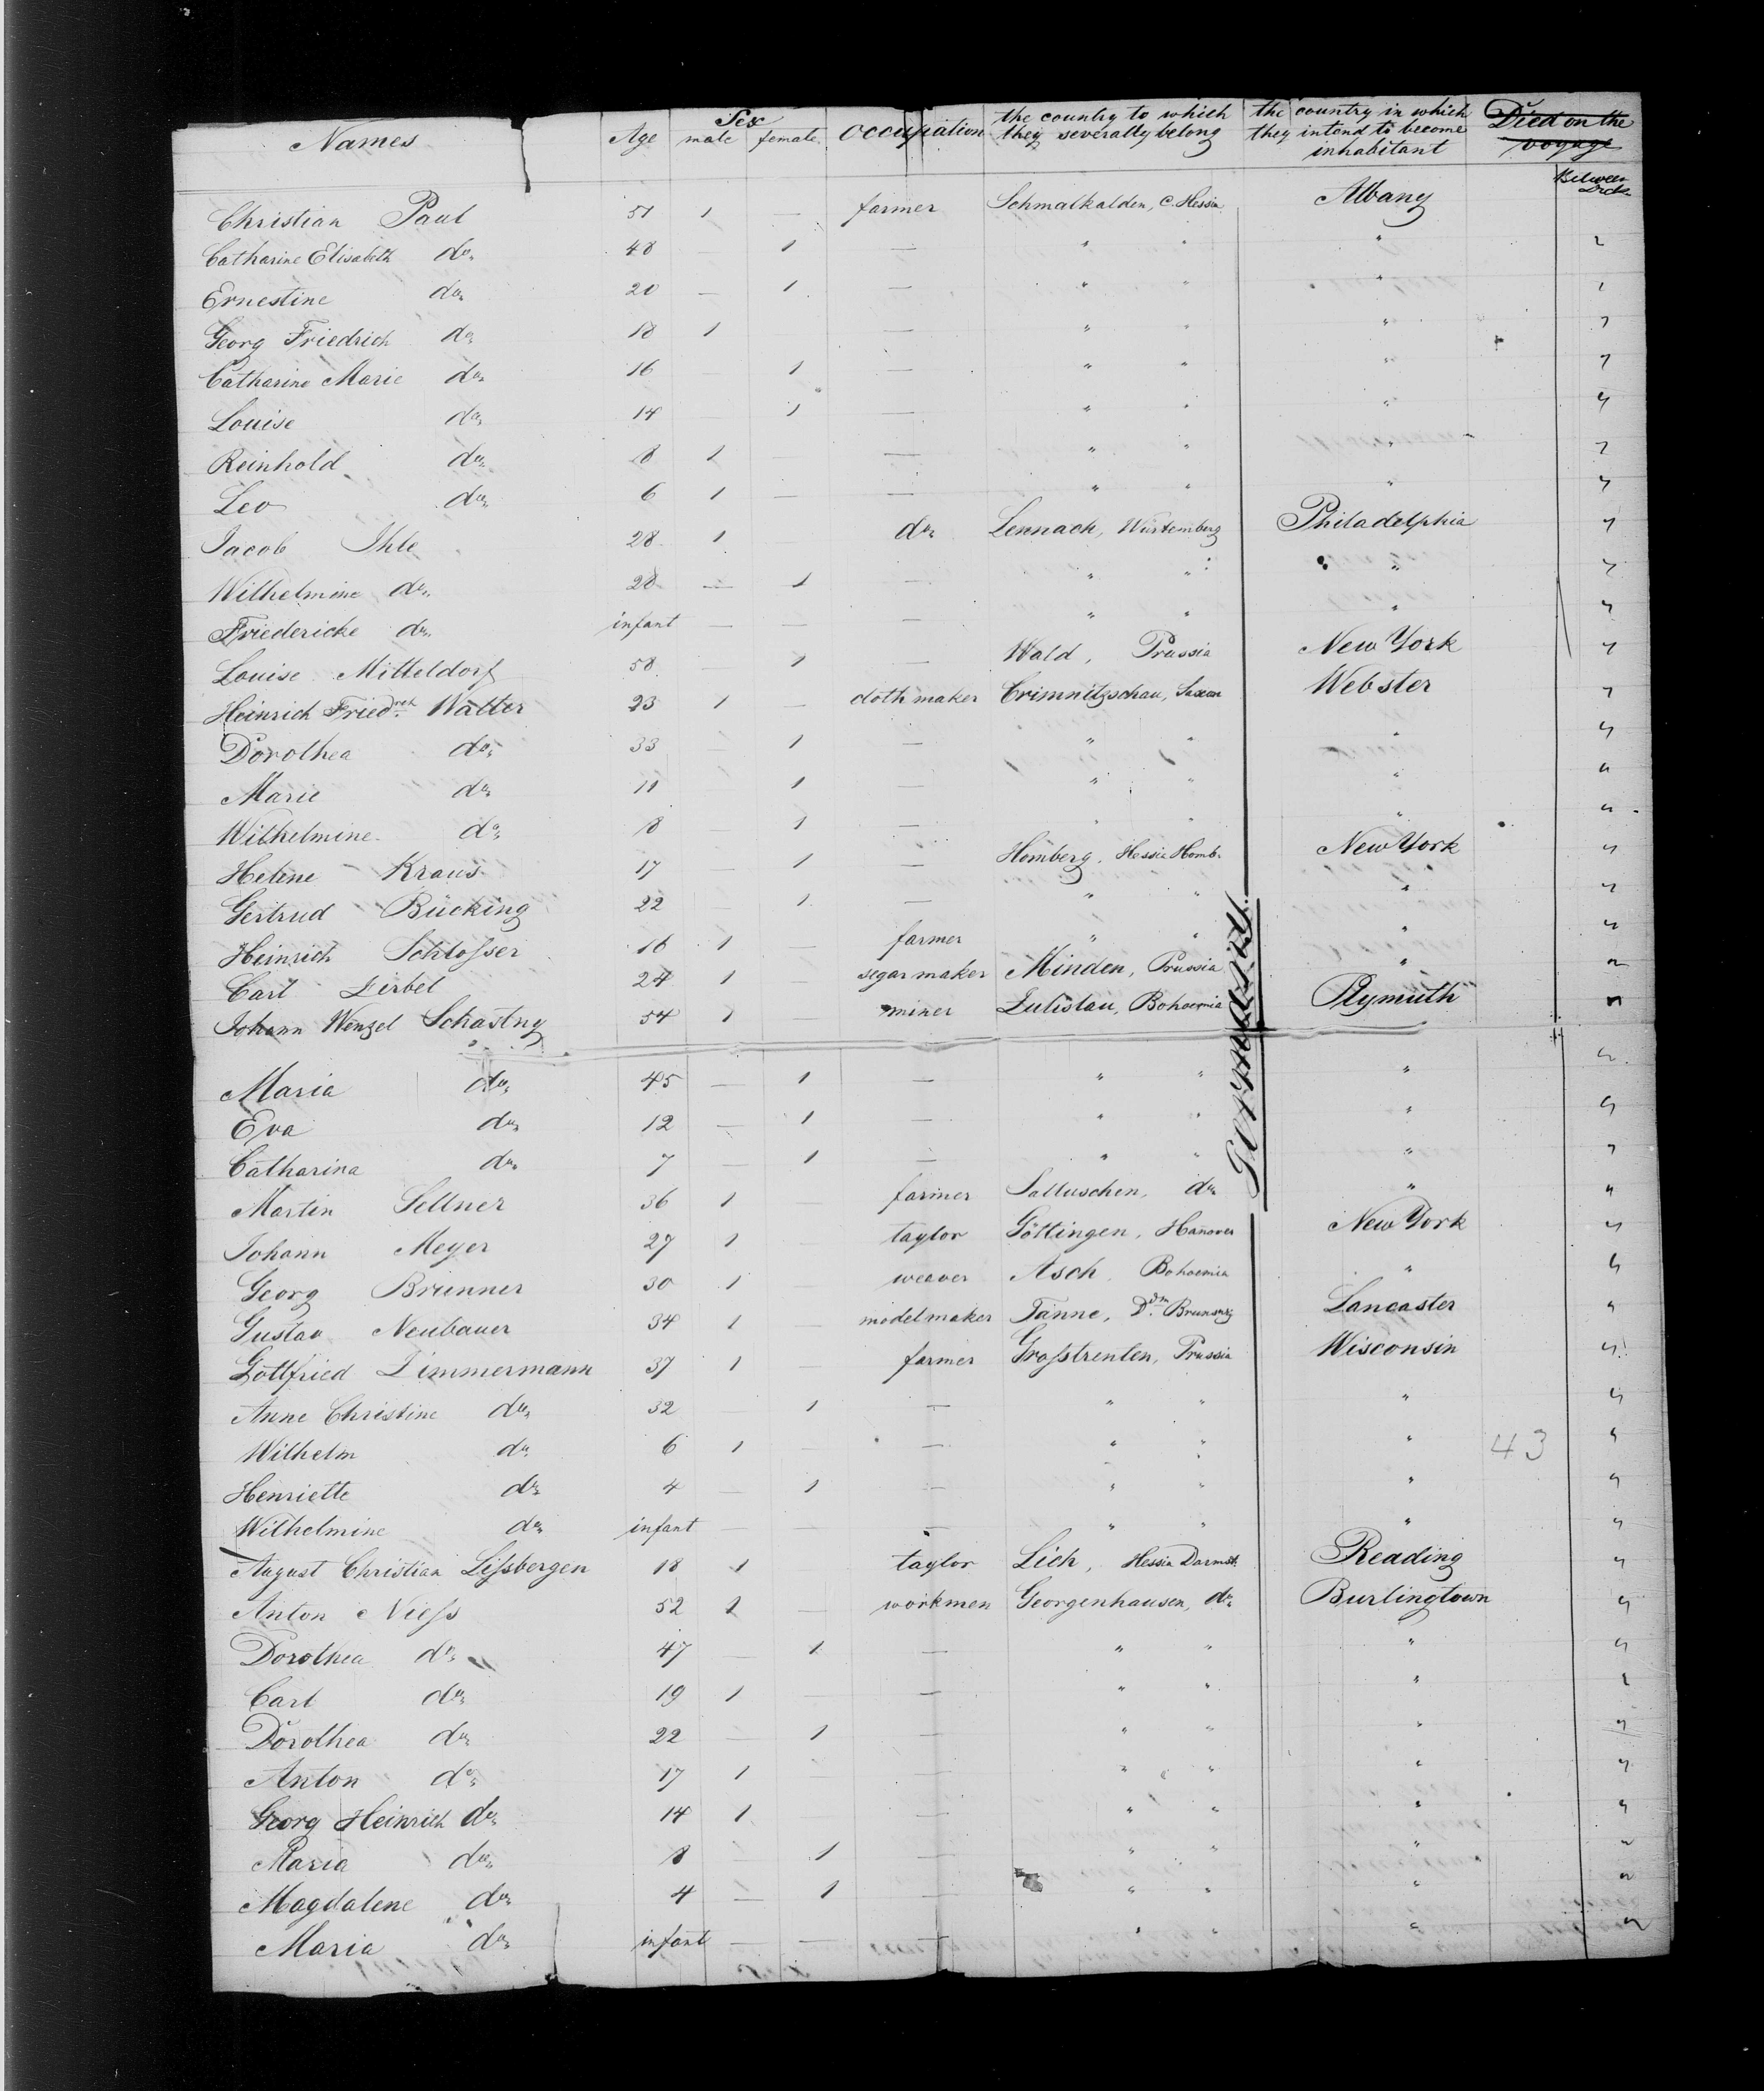 Names Age Sex male female Occupation the country to which they severally belong the country in which they intend to become inhabitant Died on the voyage
Between Deck
Christian Paul 51 1 — farmer Schmalkalden, C. Hessia Albany
Catharine Elisabeth do 48 — 1 — " " "
Ernestine do 20 — 1 — " " "
Georg Friedrich do 18 1 — " " "
Catharine Marie do 16 — 1 — " " "
Louise do 14 1 — " " "
Reinhold do 8 1 — — " " "
Leo do 6 1 — — " " "
Jacob Ihle 28 1 — do Lennach, Würtemberg Philadelphia "
Wilhelmine do 28 — 1 — " " " "
Friedericke do infant — — — " " " "
Louise Mitteldorf 58 — 1 — Wald, Prussia New York "
Heinrich Friedrch Walter 23 1 — cloth maker Crimnitzschau, Saxon Webster "
Dorothea do 33 — 1 — " " " "
Marie do 11 1 — " " " "
Wilhelmine do 8 1 — " " " "
Helene Kraus 17 — 1 — Homberg, Hessia Homb. New York "
Gertrud Bücking 22 — 1 — " " " "
Heinrich Schloſser 16 1 — farmer " " " "
Carl Zirbel 24 1 — segar maker Minden, Prussia " "
Johann Wenzel Schastny 54 1 — miner Zulislau, Bohoemia Plymuth "
Maria do 45 — 1 — " " " "
Eva do 12 — 1 — " " " "
Catharina do 7 1 — " " " "
Martin Sellner 36 1 — farmer Salluschen, do " "
Johann Meyer 27 1 — taylor Göttingen, Hanover New York "
Georg Brunner 30 1 — weaver Asch, Bohoemia " "
Gustav Neubauer 34 1 — model maker Tanne, Lancaster "
Gottfried Zimmermann 37 1 — farmer Groſstrenlen, Prussia Wisconsin "
Anne Christine do 32 — 1 — " " " "
Wilhelm do 6 1 — " " " 43 "
Henriette do 4 — 1 — " " " "
Wilhelmine do infant — — " " " "
August Christian Liſsbergen 18 1 taylor Lich, Hessia Darmst. Reading "
Anton Nieſs 52 1 — workmen Georgenhausen, do Burlingtown "
Dorothea do 47 — 1 — " " " "
Carl do 19 1 — — " " "
Dorothea do 22 — 1 — " " " "
Anton do 17 1 — " " " "
Georg Heinrich do 14 1 — " " " "
Maria do 8 1 — " " " "
Magdalene do 4 — 1 — " " " "
Maria do infant — — — " " " "